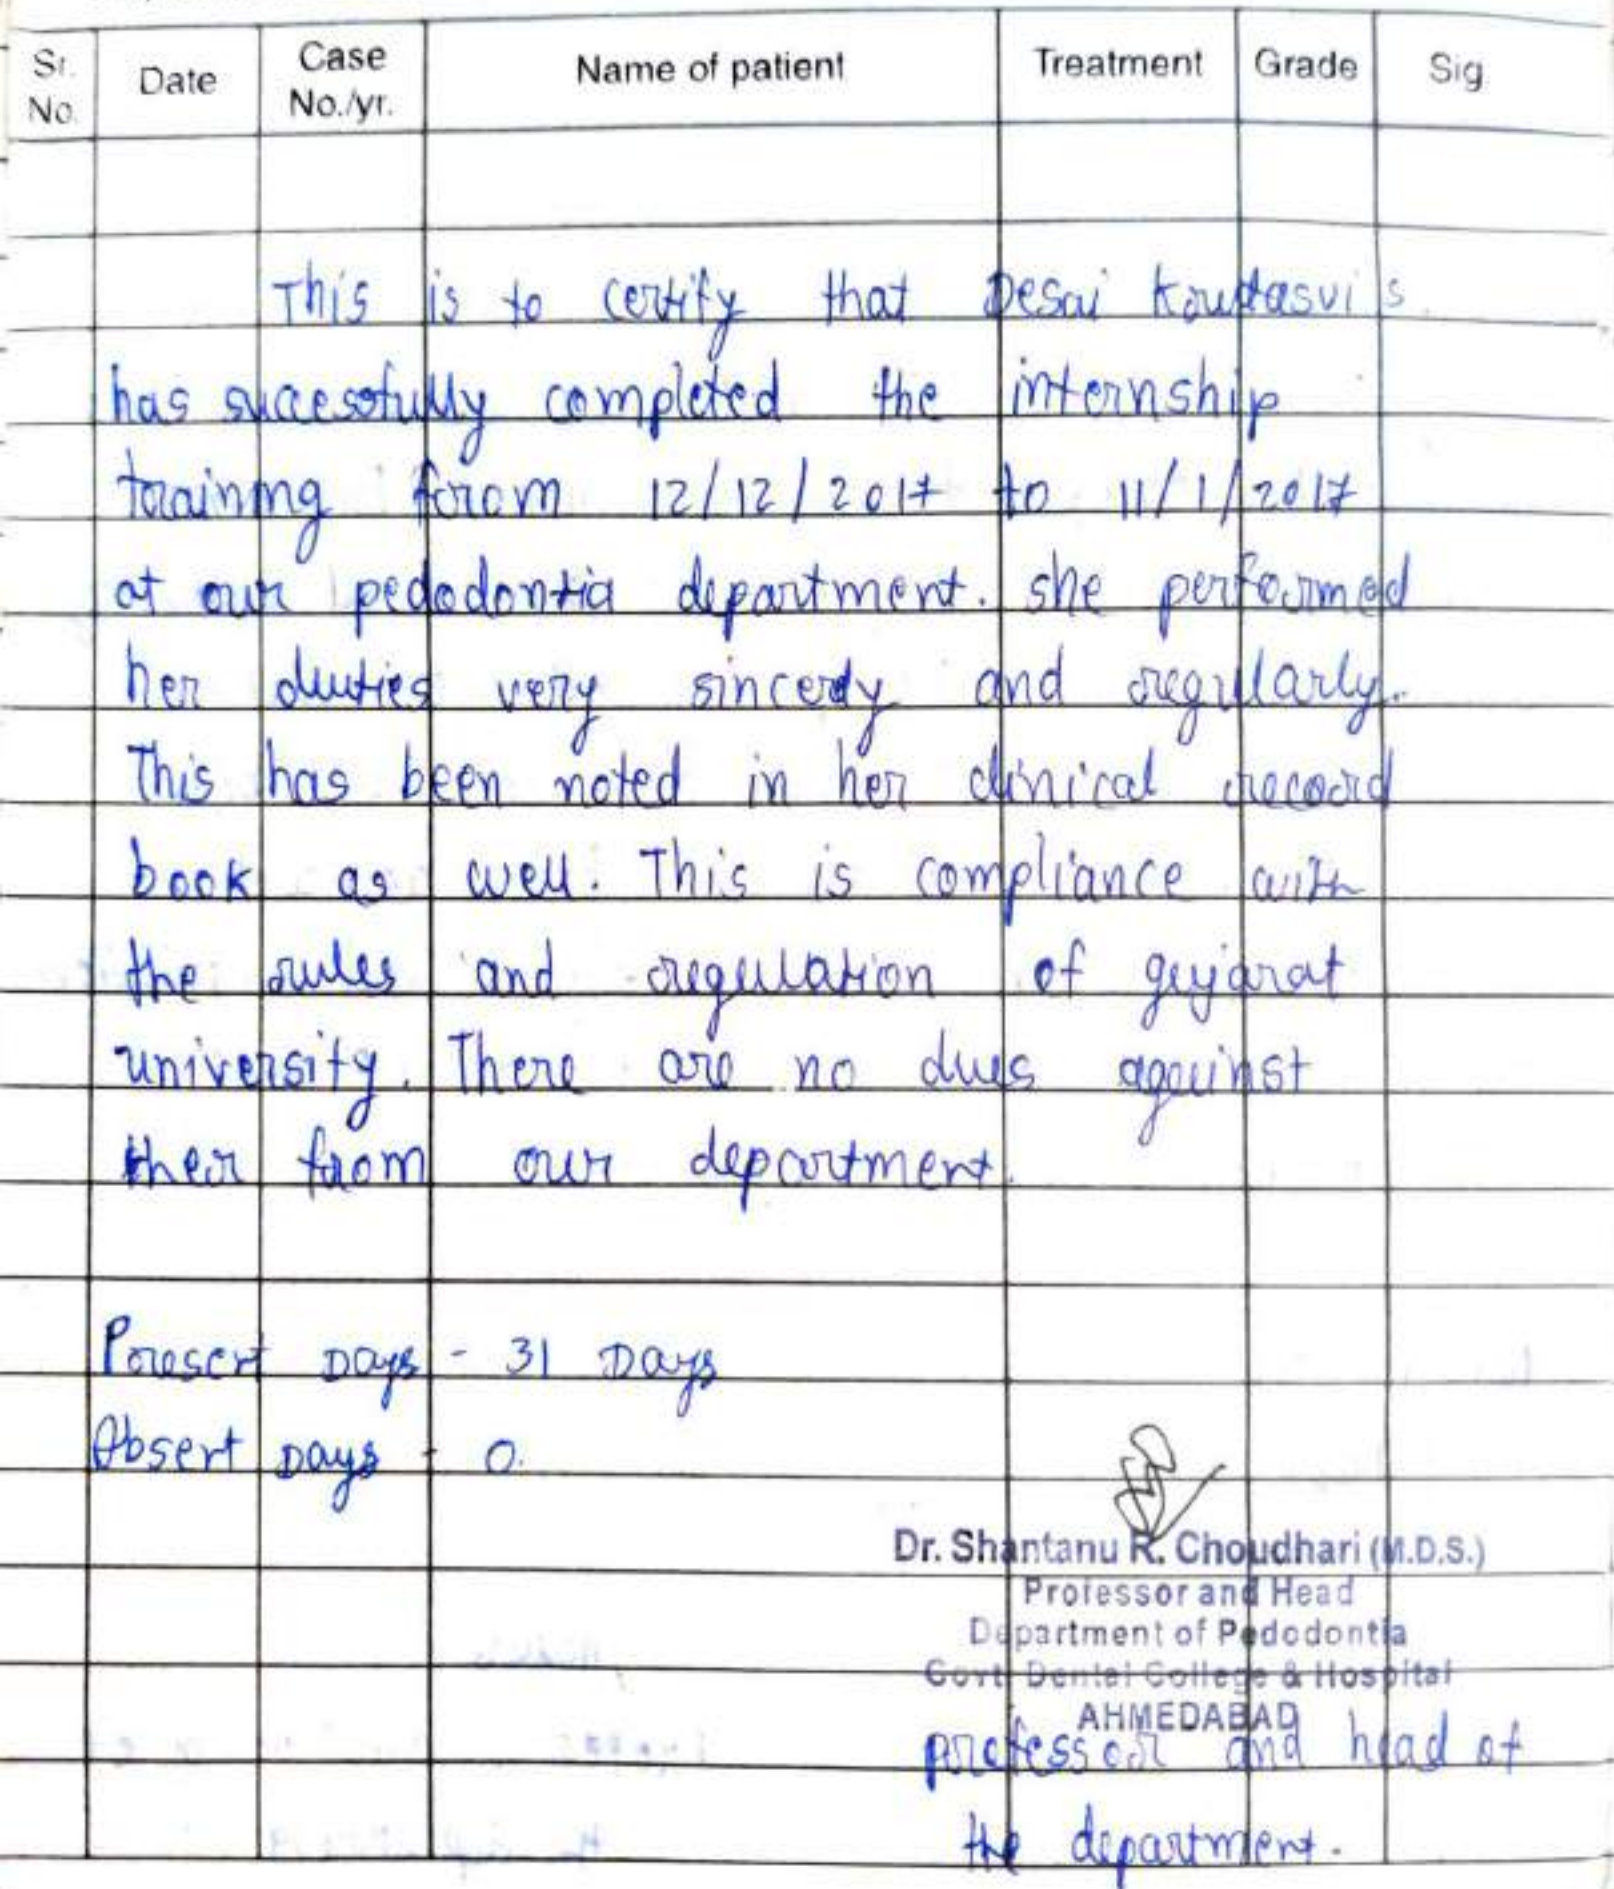 Sr. No. Date Case No./yr. Name of patient Treatment Grade Sig
This is to certify that Desai s
has sucessfully completed the internship
training from 12/12/2017 to 11/1/2017
at our pedodontia department. she performed
her duties very sincerly and regularly.
This has been noted in her clinical record
book as well. This is compliance with
the rules and regulation of gujarat
university. There are no dues against
their from our department.
Present Days - 31 Days
Absent Days - 0.
Dr. Shantanu R. Choudhari (M.D.S.)
Professor and Head
Department of Pedodontia
Govt. Dental College & Hospital
AHMEDABAD
professor and head of
the department.